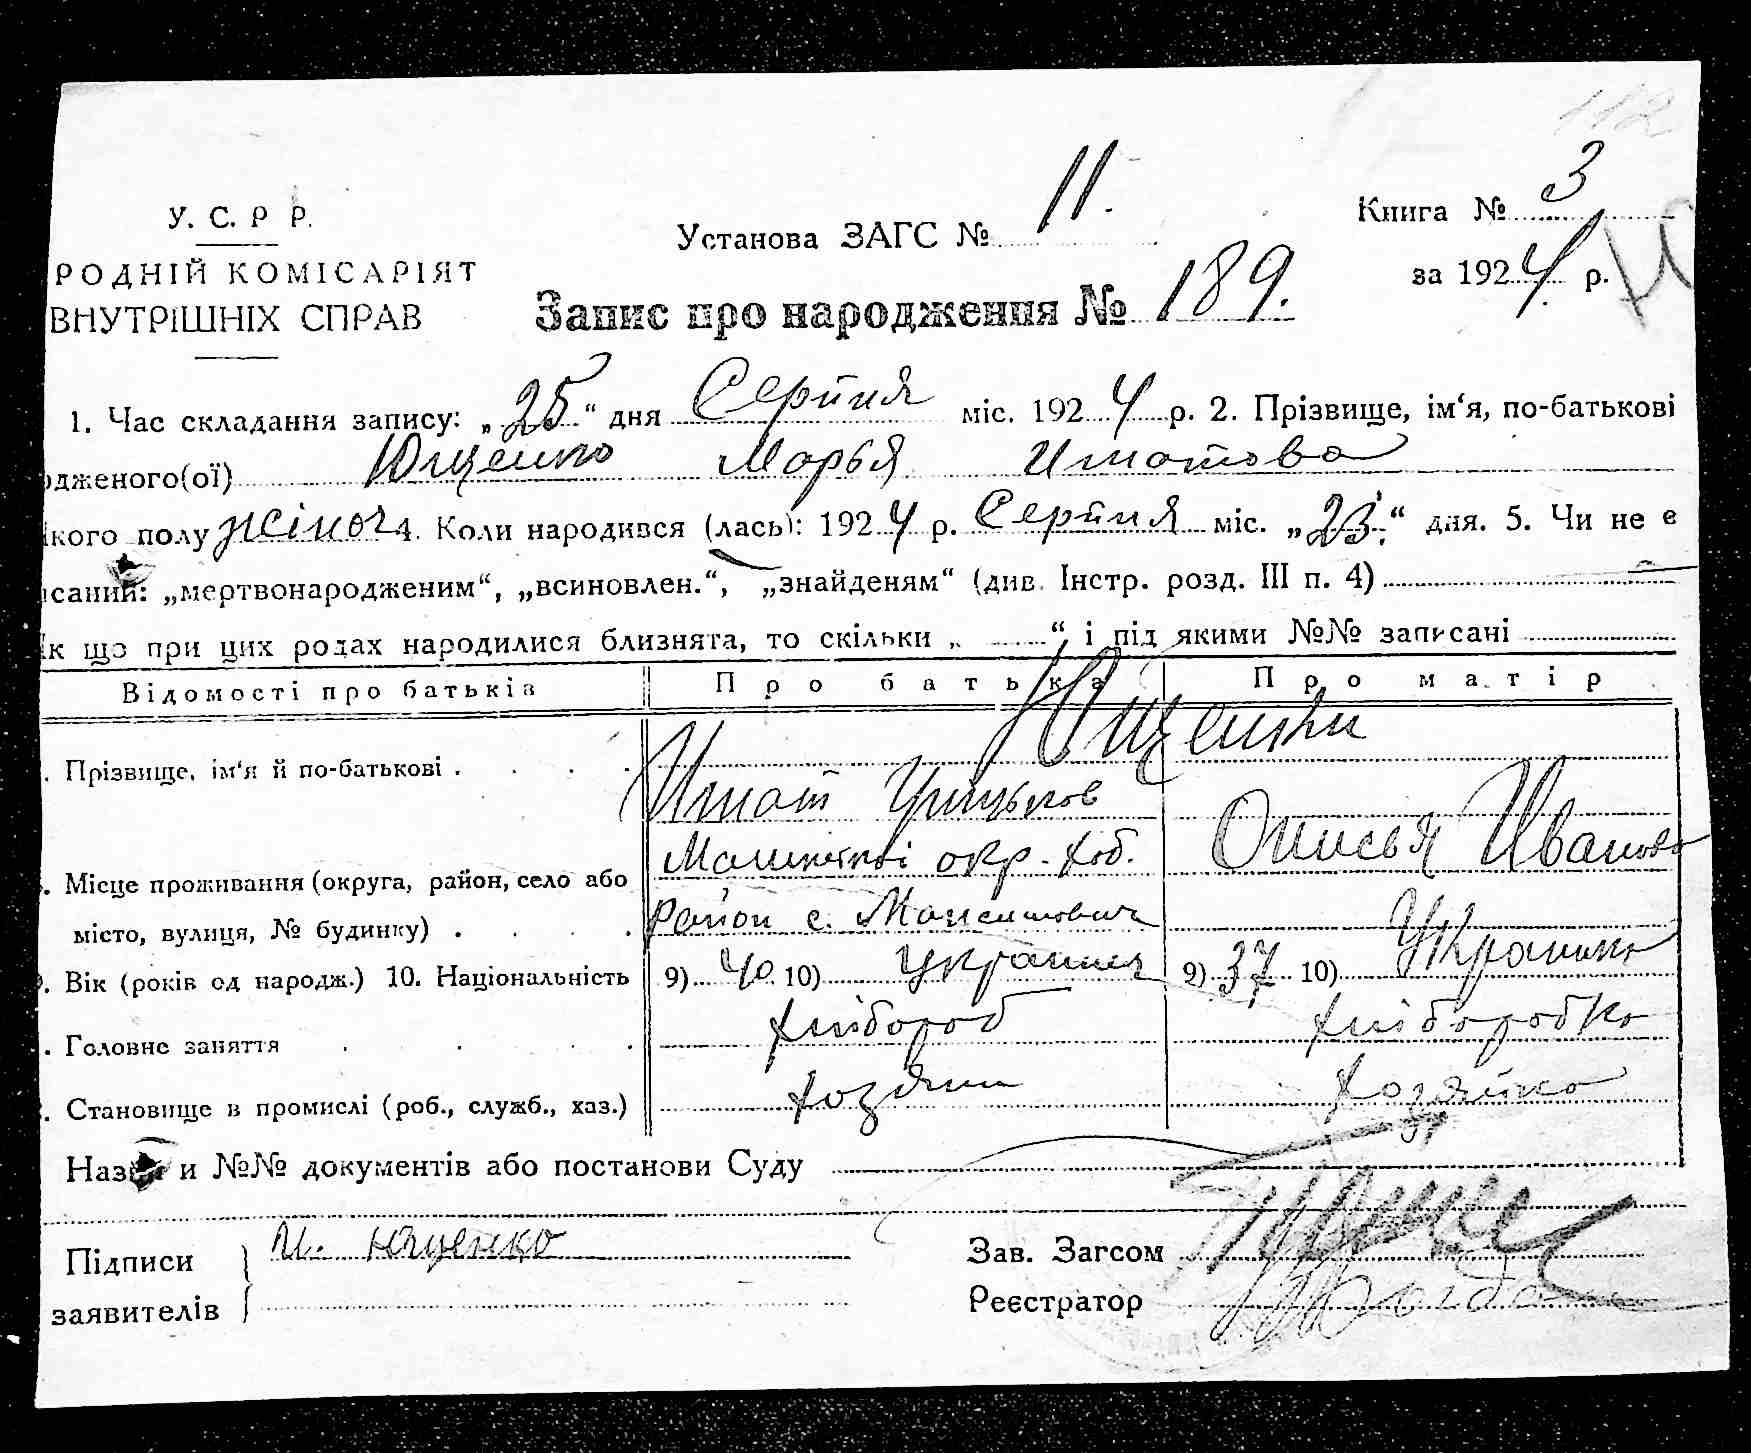 112
У. С. Р Р.
Установа ЗАГС № 11.
Книга № 3
РОДНІЙ КОМІСАРІЯТ
ВНУТРІШНІХ СПРАВ
за 1924 р.
Запис про народження № 189.
1. Час складання запису: „25“ дня Серпня міс. 1924 р. 2. Прізвище, ім‘я, по-батькові
дженого(ої) Ющенко Марья Игнатова
кого полу жіноч 4. Коли народився (лась): 1924 р. Серпня міс. „23“ дня. 5. Чи не є
саний: „мертвонародженим“, „всиновлен.“, „знайденям“ (див. Інстр. розд. III п. 4)
к що при цих родах народилися близнята, то скільки „ “, і під якими №№ записані
Відомості про батьків Про батька Про матір
Ющенки
. Прізвище, ім‘я й по-батькові .
Игнат Грицьков
Онисья Иванова
. Місце проживання (округа, район, село або
окр.
місто, вулиця, № будинку) .
Район с. Максимович
. Вік (років од народж.) 10. Національність 9) 40 10) Украинец 9) 37 10) Украинка
. Головне заняття Хлібороб Хліборобка
. Становище в промислі (роб., служб., хаз.) Хозяин Хозяйка
Назви и №№ документів або постанови Суду
Підписи И. Ющенко
заявителів
Зав. Загсом
Реєстратор